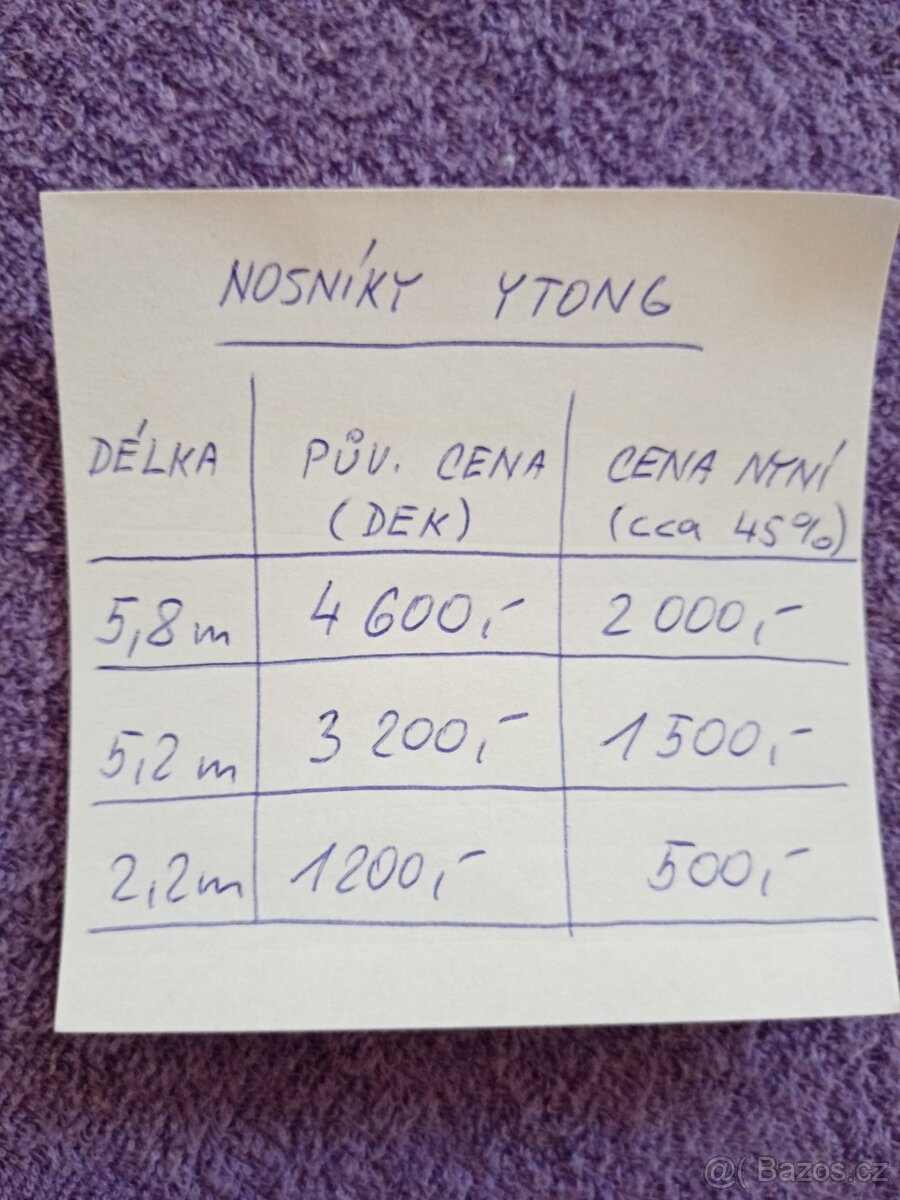 NOSNÍKY YTONG
DÉLKA PŮV. CENA (DEK) CENA NYNÍ (cca 45%)
5,8 m 4 600,- 2 000,-
5,2 m 3 200,- 1 500,-
2,2 m 1200,- 500,-
@( Bazos.cz